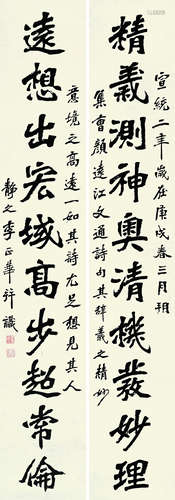 宣統二年歲在庚戌春三月朔
精義測神奧清機發妙理
集會顏遠江文通詩句其繹義之精妙
意境之高遠一如其詩尤足想見其人
遠想出宏域高步超常倫
靜之李正華并識